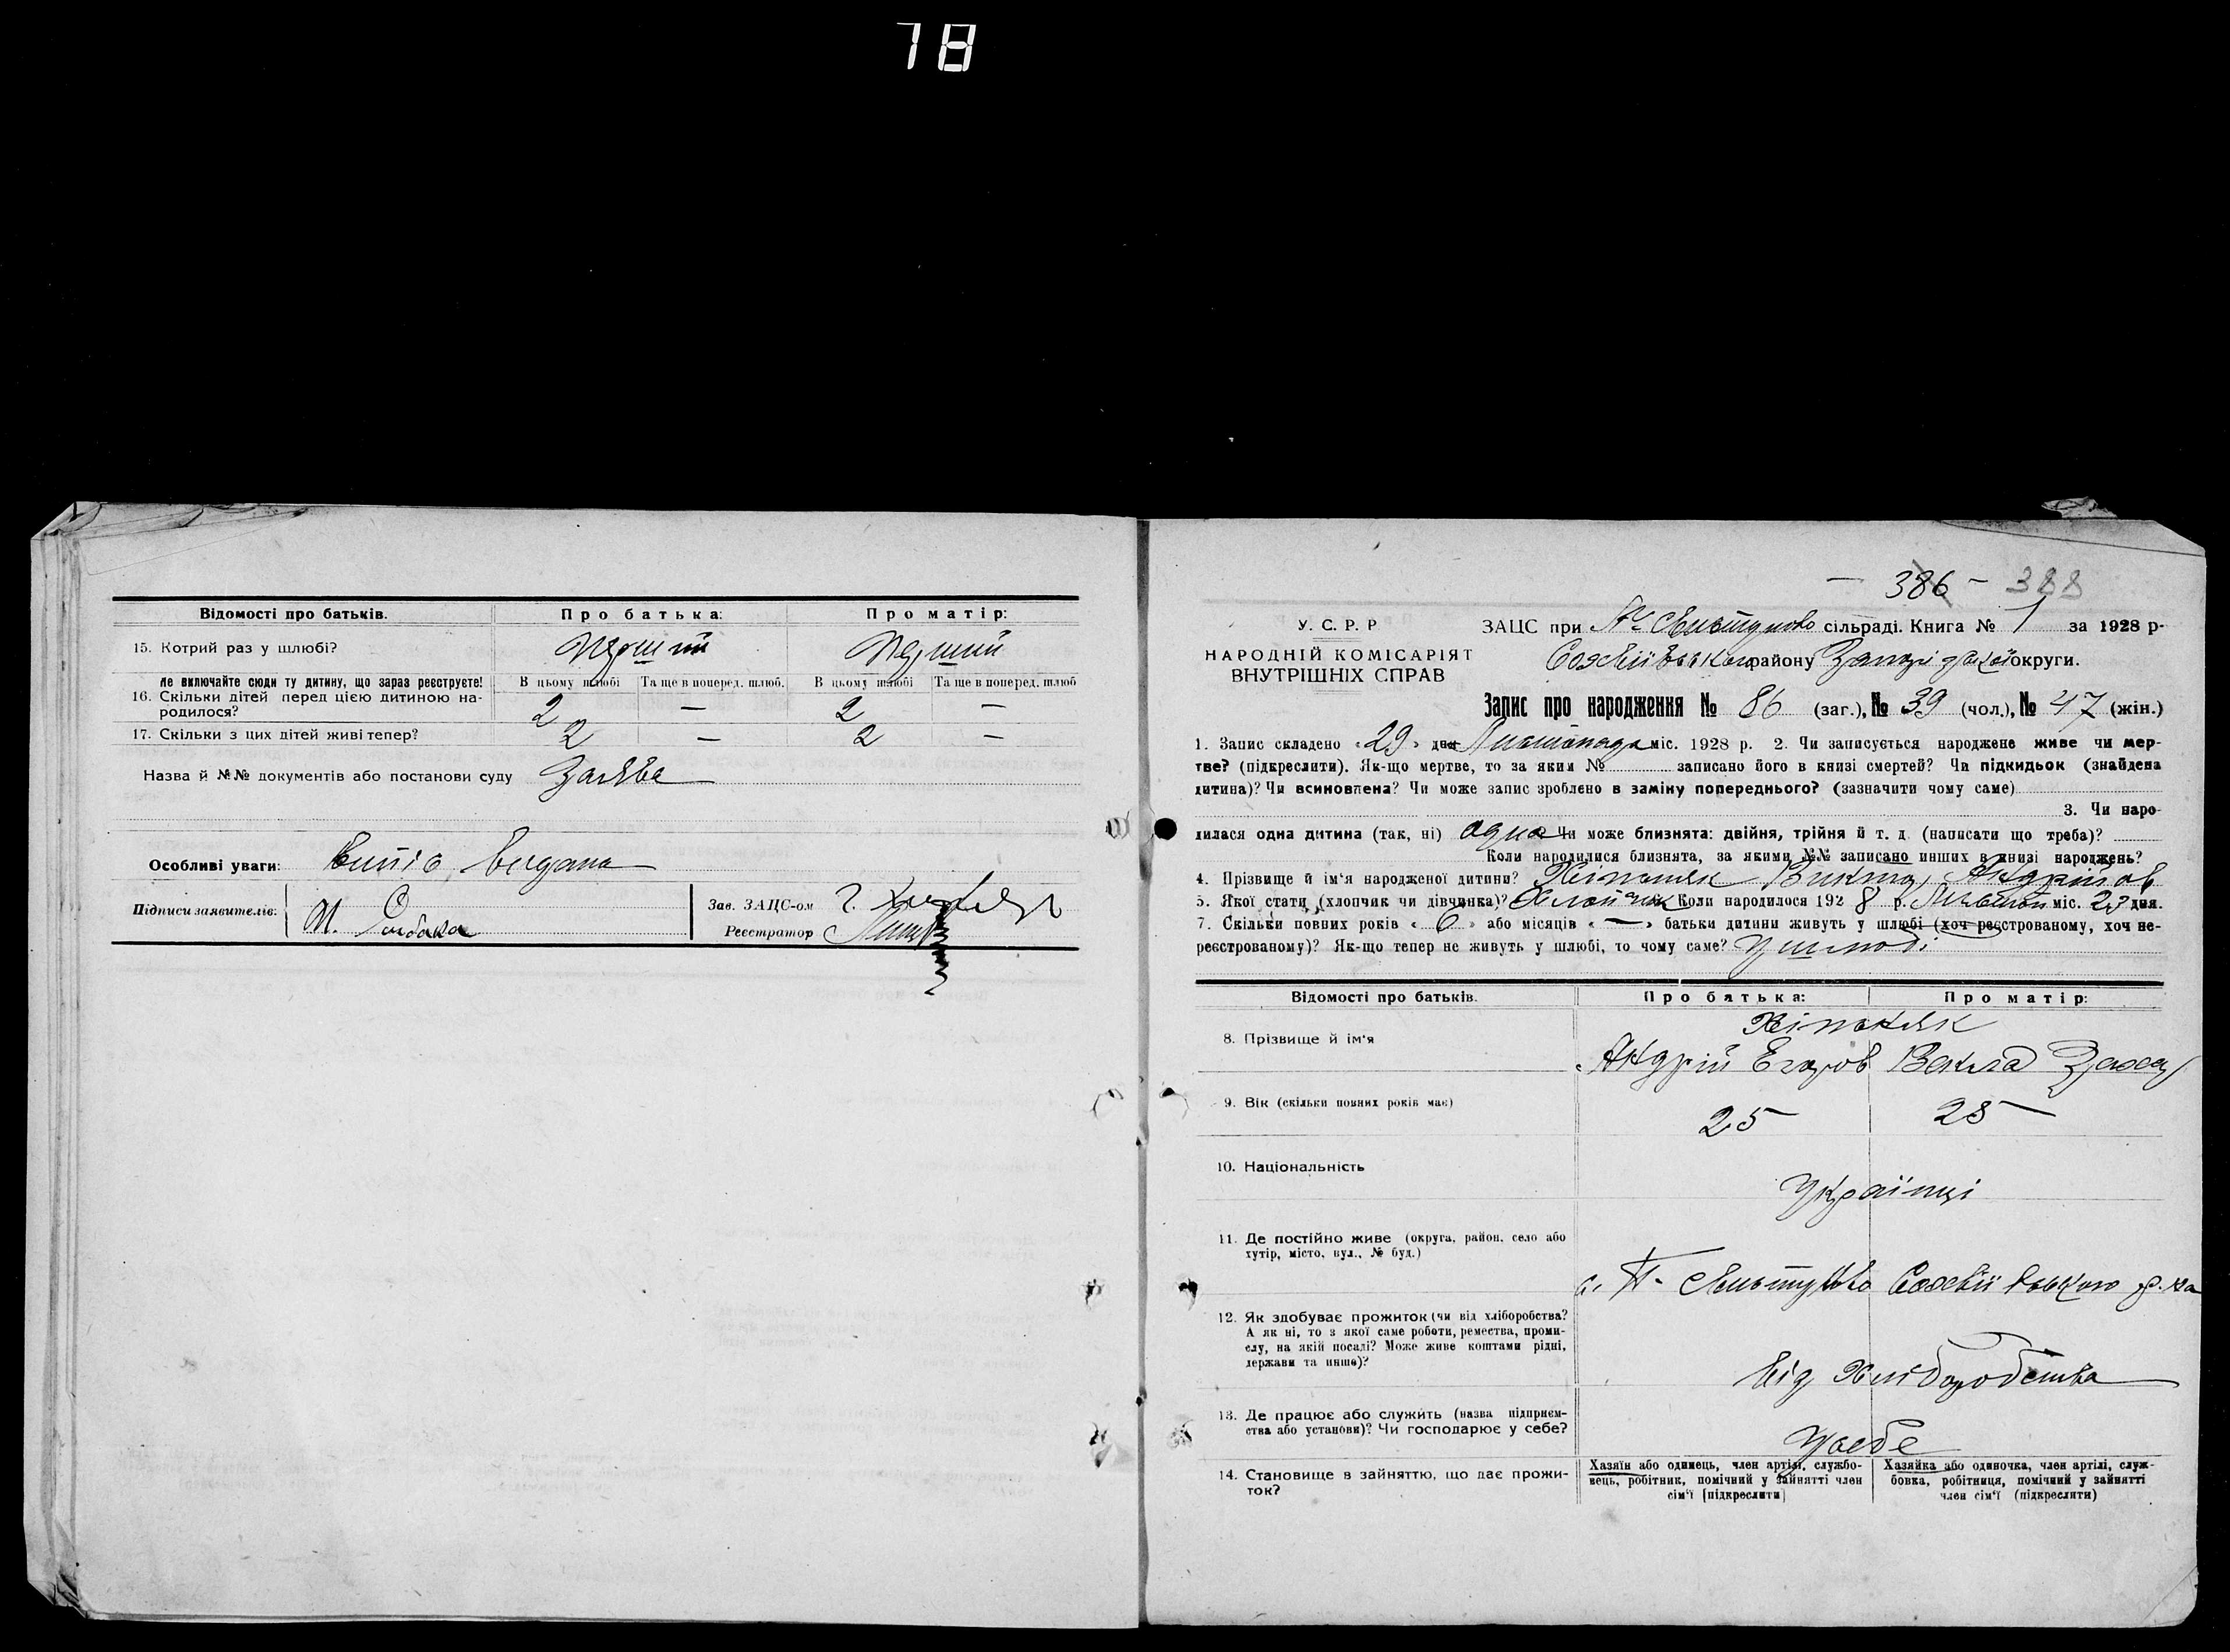 78
Відомості про батьків. Про батька: Про матір:
15. Котрий раз у шлюбі? Перший Перший
Не включайте сюди ту дитину, що зараз реєструєте! В цьому шлюбі Та ще в поперед. шлюб. В цьому шлюбі Та ще в поперед. шлюб
16. Скільки дітей перед цією дитиною на-
родилося? 2 — 2 —
17. Скільки з цих дітей живі тепер? 2 — 2 —
Назва й №№ документів або постанови суду Заява
Особливі уваги: Витіс видано
Підписи заявителів: И. Собака
Зав. ЗАЦС-ом Г.
Реєстратор
— 386 — 388
У. С. Р. Р
НАРОДНІЙ КОМІСАРІЯТ
ВНУТРІШНІХ СПРАВ
ЗАЦС при Н. Свистуново сільраді. Книга № 1 за 1928 р-
Софіївського району Запорізької округи.
Запис про народження № 86 (заг.), № 39 (чол.), № 47 (жін.)
1. Запис складено «29» дня Листопада міс. 1928 р. 2. Чи записується народжене живе чи мер-
тве? (підкреслити). Як-що мертве, то за яким № записано його в книзі смертей? Чи підкидьок (знайдена
дитина)? Чи всиновлена? Чи може запис зроблено в заміну попереднього? (зазначити чому саме)
3. Чи наро-
дилася одна дитина (так, ні) одна Чи може близнята: двійня, трійня й т. д (написати що треба)?
Коли народилися близнята, за якими №№ записано инших в книзі народжень?
4. Прізвище й ім'я народженої дитини? Віктор Андрійов
5. Якої стати (хлопчик чи дівчинка)? Хлопчик Коли народилося 1928 р. Листопад міс. 23 дня.
7. Скільки повних років «6» або місяців «—» батьки дитини живуть у шлюбі (хоч реєстрованому, хоч не-
реєстрованому)? Як-що тепер не живуть у шлюбі, то чому саме? У шлюбі
Відомості про батьків. Про батька: Про матір:
8. Прізвище й ім'я
Андрій Егоров Векла Захар
9. Вік (скільки повних років має) 25 25
10. Національність Українці
11. Де постійно живе (округа, район, село або
хутір, місто, вул., № буд.)
с. Н. Свистуново Софіївського р-на
12. Як здобуває прожиток (чи від хліборобства?
А як ні, то з якої саме роботи, ремества, проми-
слу, на якій посаді? Може живе коштами рідні,
держави та инше)?
Від Хліборобства
13. Де працює або служить (назва підприєм-
ства або установи)? Чи господарює у себе?
У себе
14. Становище в зайняттю, що дає прожи-
ток?
Хазяїн або одинець, член артілі, службо-
вець, робітник, помічний у зайнятті член
сім'ї (підкреслити)
Хазяйка або одиночка, член артілі, служ-
бовка, робітниця, помічний у зайнятті
член сім'ї (підкреслити)